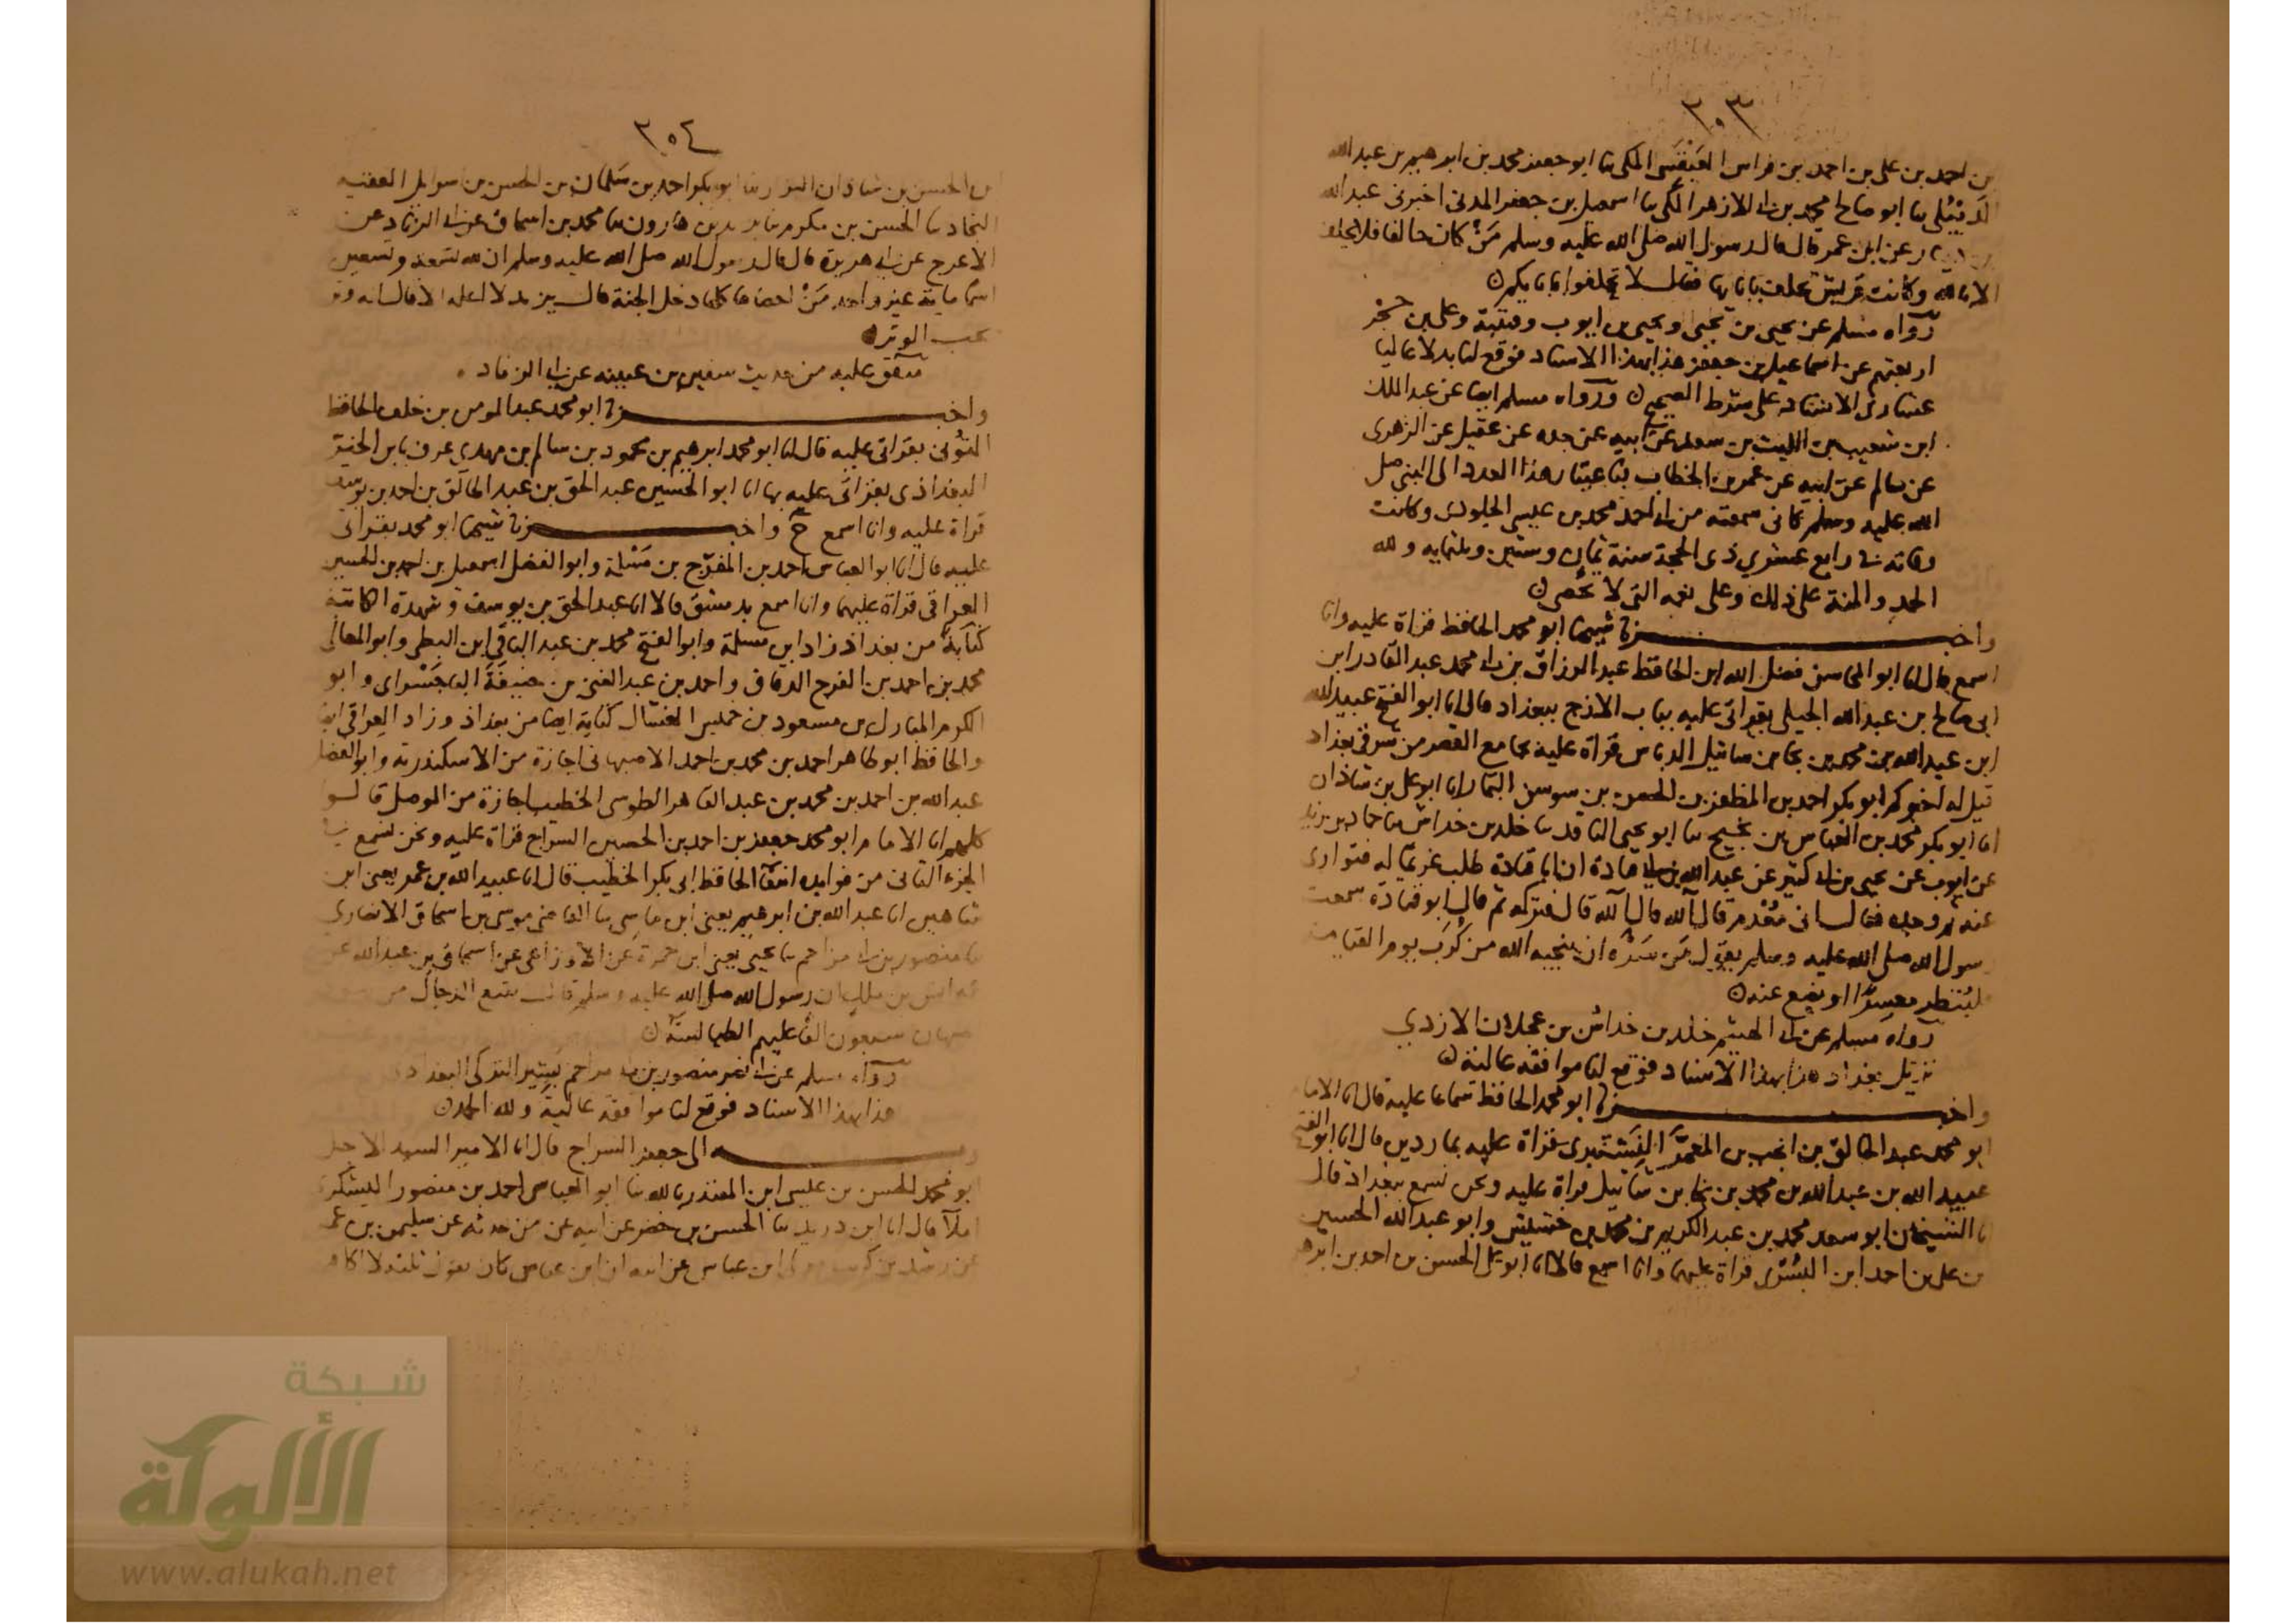 ٣٠٣
بن احمد بن على بن احمد بن فراس العَبْقَسَى المكى نا ابو جعفر محمد بن ابرهيم بن عبد الله
الدَيْبُلى نا ابو صالح محمد بن ابى الازهر المكى نا اسمعيل بن جعفر المدنى اخبرنى عبد الله
بن دينار عن ابن عمر قال قال رسول الله صلى الله عليه وسلم مَنْ كان حالفا فلا يحلف
الا بالله وكانت قريش تحلف بابايها فقال لا تحلفوا بابايكم
رواه مسلم عن يحيى بن يحيى ويحيى بن ايوب وقتيبة وعلى بن حُجْر
اربعتهم عن اسماعيل بن جعفر هذا بهذا الاسناد فوقع لنا بدلا عاليا
عشارى الاسناد على شرط الصحيح ورواه مسلم ايضا عن عبد الملك
ابن شعيب بن الليث بن سعد عن ابيه عن جده عن عقيل عن الزهرى
عن سالم عن ابيه عن عمر بن الخطاب فباعتبار هذا العدد الى النبى صلى
الله عليه وسلم كانى سمعته من ابى احمد محمد بن عيسى الجلودى وكانت
وفاته فى رابع عشرى ذى الحجة سنة ثمان وستين وثلثمايه ولله
الحمد والمنة على ذلك وعلى نعمه التى لا تحصى
واخبرنا شيخنا ابو محمد الحافظ قراة عليه وانا
اسمع قال انا ابو المحاسن فضل الله ابن الحافظ عبد الرزاق بن ابى محمد عبد القادر ابن
ابى صالح بن عبد الله الجيلى بقراتى عليه بباب الازج ببغداد قال انا ابو الفتح عبيد الله
ابن عبد الله بن محمد بن نجا بن شاتيل الدباس قراة عليه بجامع القصر من شرقى بغداد
قيل له اخبركم ابو بكر احمد بن المظفر بن الحسين بن سوسن التمار انا ابو على بن شاذان
انا ابو بكر محمد بن العباس بن نجيح نا ابو يحيى الناقد نا خلد بن خداش نا حماد بن زيد
عن ايوب عن يحيى بن ابى كثير عن عبد الله بن ابى قتادة ان ابا قتادة طلب غريما له فتوارى
عنه ثم وجده فقال انى مُعْدِم قال آلله قال آلله قال فتركه ثم قال ابو قتادة سمعت
رسول الله صلى الله عليه وسلم يقول مَن سَرَّه ان ينجيه الله من كُرَب يوم القيامة
فليُنظر معسرًا او يضع عنه
رواه مسلم عن ابى الهيثم خلد بن خداش بن عجلان الازدى
نزيل بغداد هذا بهذا الاسناد فوقع لنا موافقة عالية
واخبرنا ابو محمد الحافظ سماعا عليه قال انا الامام
ابو محمد عبد الخالق بن انجب بن المعمَّر النِشْتِبرى قراة عليه بماردين قال انا ابو الفتح
عبيد الله بن عبد الله بن محمد بن نجا بن شاتيل قراة عليه ونحن نسمع ببغداد قال
انا الشيخان ابو سعد محمد بن عبد الكريم بن محمد بن خشيش وابو عبد الله الحسين
بن على بن احمد ابن البُسْرى قراة عليهما وانا اسمع قالا انا ابو على الحسن بن احمد بن ابرهيم
٣٠٤
ابن الحسن بن شاذان البزار نا ابو بكر احمد بن سَلمان بن الحسن بن اسرايل الفقيه
النجاد نا الحسن بن مكرم نا يزيد بن هارون نا محمد بن اسحاق عن ابى الزناد عن
الاعرج عن ابى هريرة قال قال رسول الله صلى الله عليه وسلم ان لله تسعة وتسعين
اسما ماية غير واحد مَنْ احصاها كلها دخل الجنة قال يزيد لا اعلمه الا قال انه وتر
يحب الوتر
متفق عليه من حديث سفين بن عيينه عن ابى الزناد
واخبرنا ابو محمد عبد المومن بن خلف الحافظ
التونى بقراتى عليه قال انا ابو محمد ابرهيم بن محمود بن سالم بن مهدى عرف بابن الخيّر
البغداذى بقراتى عليه بها انا ابو الحسين عبد الحق بن عبد الخالق بن احمد بن يوسف
قراة عليه وانا اسمع ح واخبرنا شيخنا ابو محمد بقراتى
عليه قال انا ابو العباس احمد بن المفرّج بن مَسْلمة وابو الفضل اسمعيل بن احمد بن الحسين
العراقى قراة عليهما وانا اسمع بدمشق قالا انا عبد الحق بن يوسف وشهدة الكاتبة
كتابةً من بغداذ زاد ابن مسلمة وابو الفتح محمد بن عبد الباقى ابن البطى وابو المعالى
محمد بن احمد بن الفرج الدقاق واحمد بن عبد الغنى بن حنيفَة الباجَسْراى وابو
الكرم المبارك بن مسعود بن خميس الغسّال كتابة ايضا من بغداذ وزاد العراقى ايضا
والحافظ ابو طاهر احمد بن محمد بن احمد الاصبهانى اجازة من الاسكندرية وابو الفضل
عبد الله بن احمد بن محمد بن عبد القاهر الطوسى الخطيب اجازة من الموصل قالوا
كلهم انا الامام ابو محمد جعفر بن احمد بن الحسين السراج قراة عليه ونحن نسمع فى
الجزء الثانى من فوايده انتقآ الحافظ ابى بكر الخطيب قال انا عبيد الله بن عمر يعنى ابن
شاهين انا عبد الله بن ابرهيم يعنى ابن ماسى نا القاضى موسى بن اسحاق الانصارى
نا منصور بن ابى مزاحم نا يحيى يعنى ابن حمزة عن الاوزاعى عن اسحاق بن عبد الله عن
انس بن ملك ان رسول الله صلى الله عليه وسلم قال يتبع الدجال من يهود
اصبهان سبعون الفًا عليهم الطيالسة
رواه مسلم عن ابى نصر منصور بن ابى مزاحم بشير التركى البغدادى
هذا بهذا الاسناد فوقع لنا موافقة عالية ولله الحمد
وبه الى جعفر السراج قال انا الامير السيد الاجل
ابو محمد الحسن بن عيسى ابن المقتدر بالله نا ابو العباس احمد بن منصور اليشكرى
املآ قال انا ابن دريد نا الحسن بن خضر عن ابيه عن من حدثه عن سليمن بن عمر
ابن عباس عن ابيه ان ابن عباس كان يقول ثلثة لا اكافـ
شبكة
الألوكة
www.alukah.net